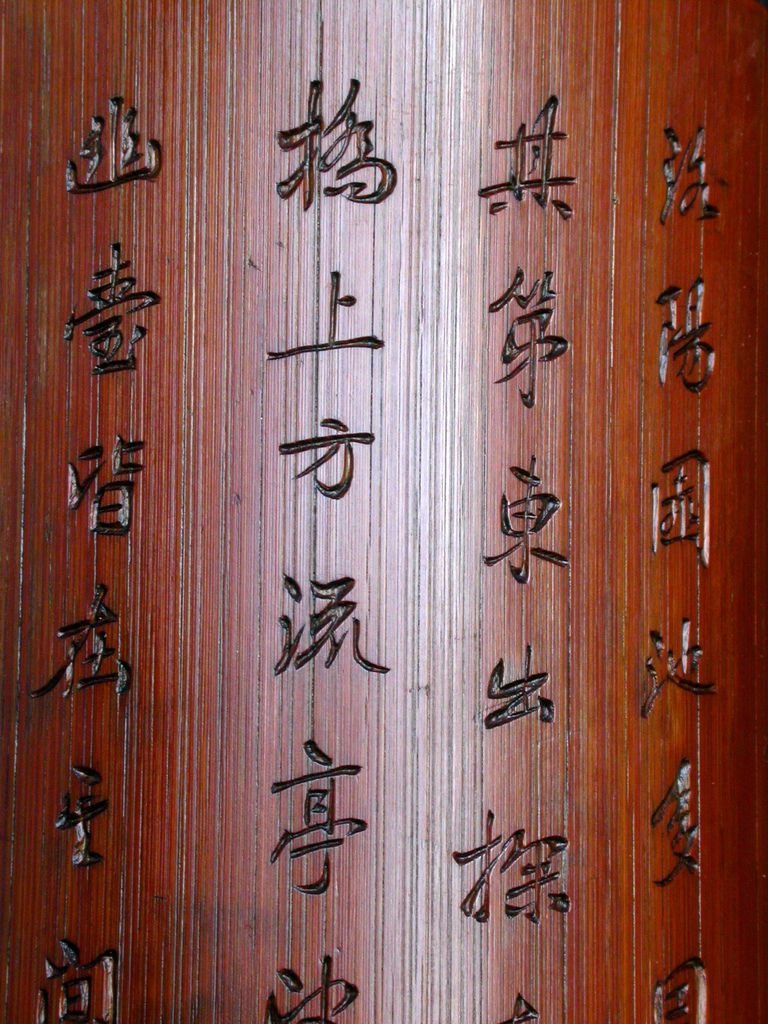 洛陽園池
其第東出探
橋上方流亭
幽臺皆在